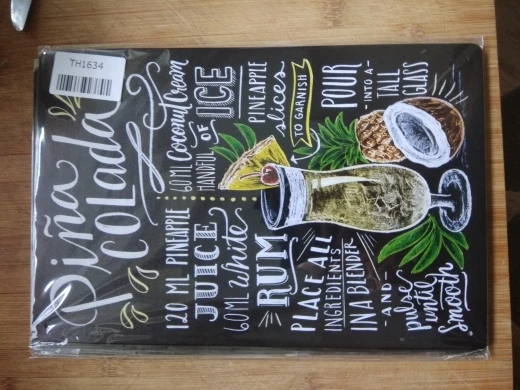 TH1634
Piña
COLada
120 ML PINEAPPLE
JUICE
60ML white
RUM
60ML Coconut Cream
HANDFUL OF ICE
PINEAPPLE
slices
TO GARNISH
PLACE ALL
INGREDIENTS
IN A BLENDER
-AND-
pulse
until
Smooth
POUR
-INTO A-
TALL
GLASS